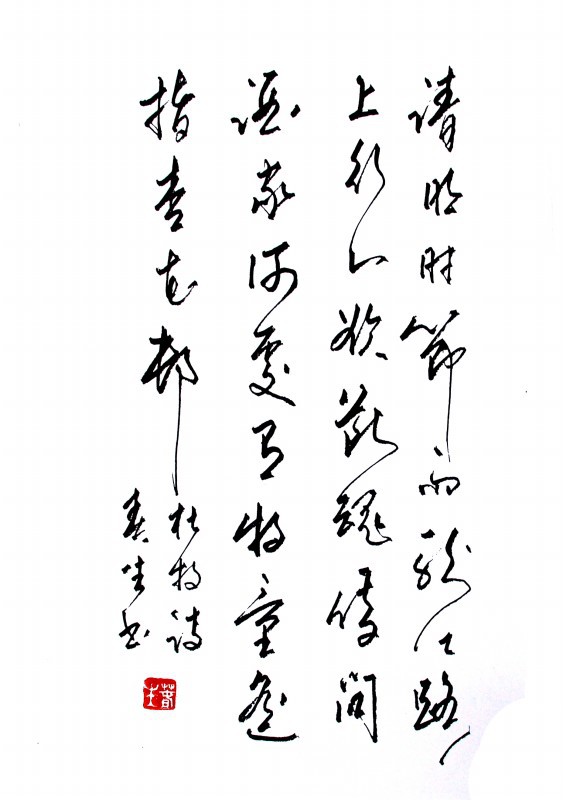 清明时節雨纷纷路
上行人欲斷魂借问
酒家何處有牧童遥
指杏花邨
杜牧诗
春生书